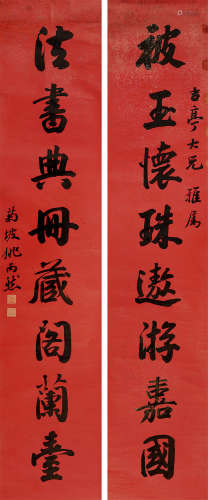 被玉懷珠遨游嘉國
吉亭大兄雅属
法書典冊藏閣蘭臺
菊坡姚丙然